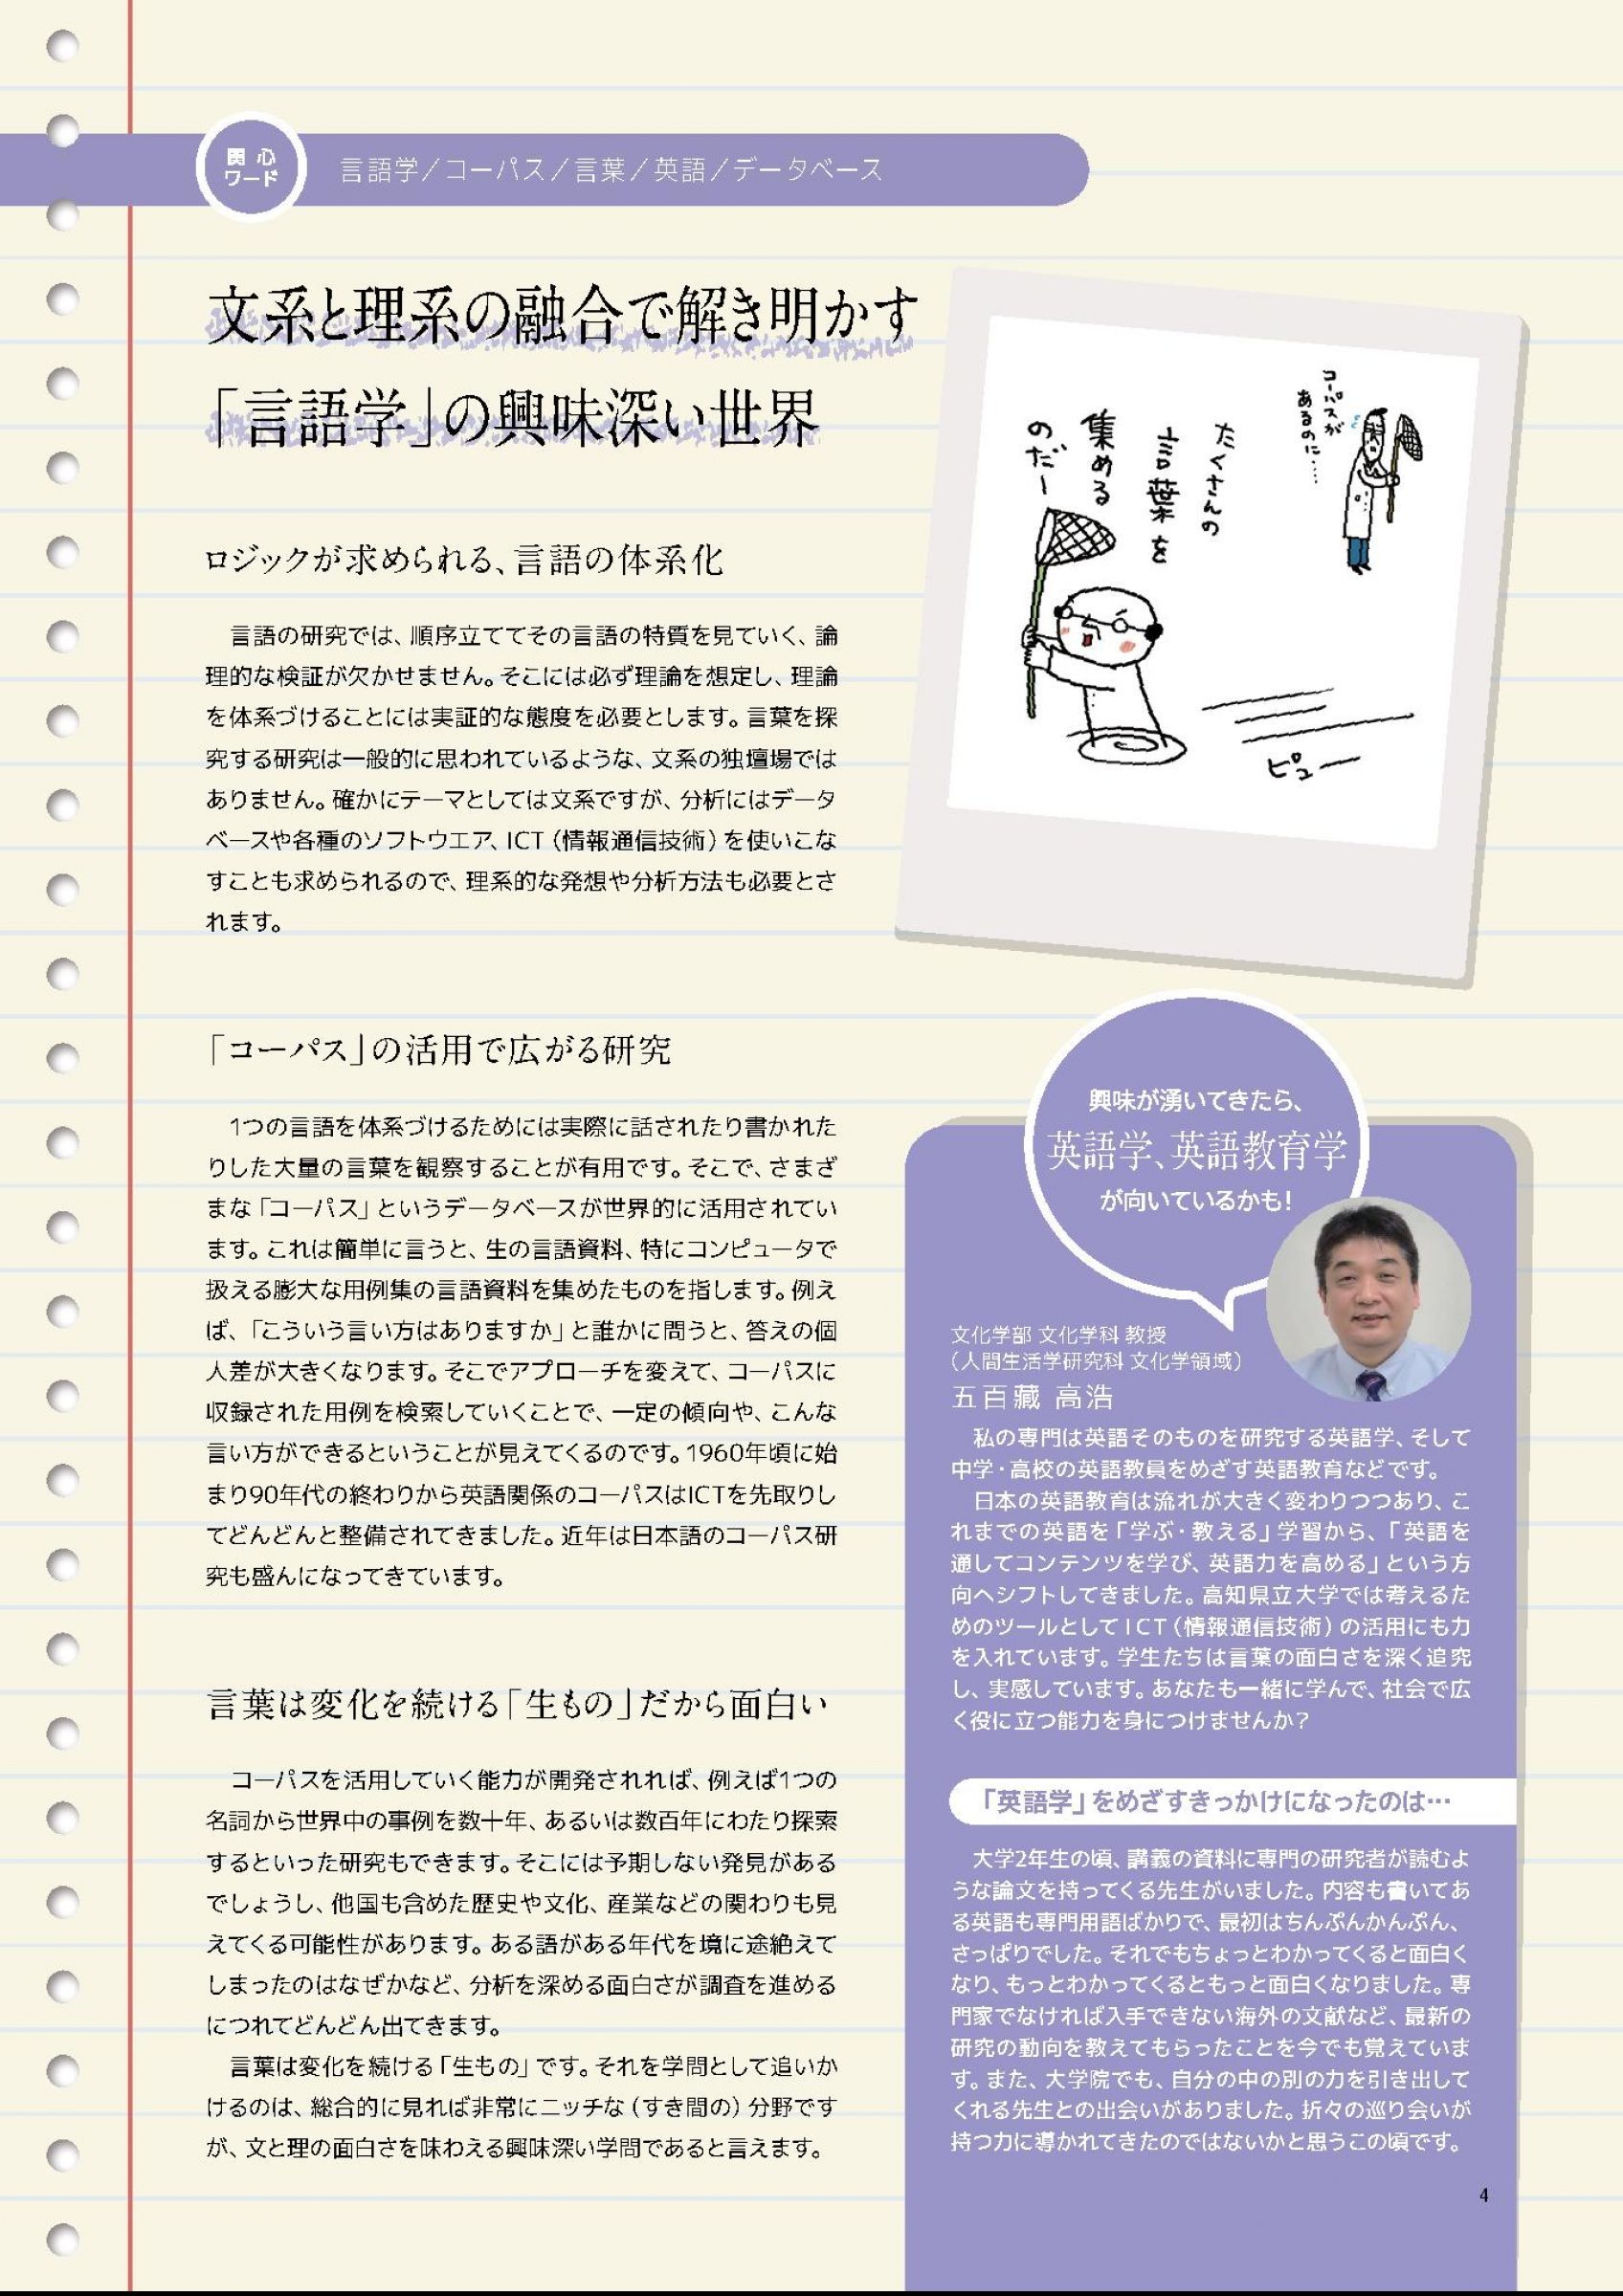 関心
ワード
言語学／コーパス／言葉／英語／データベース
文系と理系の融合で解き明かす
「言語学」の興味深い世界
ロジックが求められる、言語の体系化
言語の研究では、順序立ててその言語の特質を見ていく、論
理的な検証が欠かせません。そこには必ず理論を想定し、理論
を体系づけることには実証的な態度を必要とします。言葉を探
究する研究は一般的に思われているような、文系の独壇場では
ありません。確かにテーマとしては文系ですが、分析にはデータ
ベースや各種のソフトウエア、ICT（情報通信技術）を使いこな
すことも求められるので、理系的な発想や分析方法も必要とさ
れます。
「コーパス」の活用で広がる研究
1つの言語を体系づけるためには実際に話されたり書かれた
りした大量の言葉を観察することが有用です。そこで、さまざ
まな「コーパス」というデータベースが世界的に活用されてい
ます。これは簡単に言うと、生の言語資料、特にコンピュータで
扱える膨大な用例集の言語資料を集めたものを指します。例え
ば、「こういう言い方はありますか」と誰かに問うと、答えの個
人差が大きくなります。そこでアプローチを変えて、コーパスに
収録された用例を検索していくことで、一定の傾向や、こんな
言い方ができるということが見えてくるのです。1960年頃に始
まり90年代の終わりから英語関係のコーパスはICTを先取りし
てどんどんと整備されてきました。近年は日本語のコーパス研
究も盛んになってきています。
言葉は変化を続ける「生もの」だから面白い
コーパスを活用していく能力が開発されれば、例えば1つの
名詞から世界中の事例を数十年、あるいは数百年にわたり探索
するといった研究もできます。そこには予期しない発見がある
でしょうし、他国も含めた歴史や文化、産業などの関わりも見
えてくる可能性があります。ある語がある年代を境に途絶えて
しまったのはなぜかなど、分析を深める面白さが調査を進める
につれてどんどん出てきます。
言葉は変化を続ける「生もの」です。それを学問として追いか
けるのは、総合的に見れば非常にニッチな（すき間の）分野です
が、文と理の面白さを味わえる興味深い学問であると言えます。
コーパスが
あるのに……
たくさんの
言葉を
集める
のだー
ピューー
興味が湧いてきたら、
英語学、英語教育学
が向いているかも！
文化学部 文化学科 教授
（人間生活学研究科 文化学領域）
五百藏 高浩
私の専門は英語そのものを研究する英語学、そして
中学・高校の英語教員をめざす英語教育などです。
日本の英語教育は流れが大きく変わりつつあり、こ
れまでの英語を「学ぶ・教える」学習から、「英語を
通してコンテンツを学び、英語力を高める」という方
向へシフトしてきました。高知県立大学では考えるた
めのツールとしてICT（情報通信技術）の活用にも力
を入れています。学生たちは言葉の面白さを深く追究
し、実感しています。あなたも一緒に学んで、社会で広
く役に立つ能力を身につけませんか？
「英語学」をめざすきっかけになったのは…
大学2年生の頃、講義の資料に専門の研究者が読むよ
うな論文を持ってくる先生がいました。内容も書いてあ
る英語も専門用語ばかりで、最初はちんぷんかんぷん、
さっぱりでした。それでもちょっとわかってくると面白く
なり、もっとわかってくるともっと面白くなりました。専
門家でなければ入手できない海外の文献など、最新の
研究の動向を教えてもらったことを今でも覚えていま
す。また、大学院でも、自分の中の別の力を引き出して
くれる先生との出会いがありました。折々の巡り会いが
持つ力に導かれてきたのではないかと思うこの頃です。
4